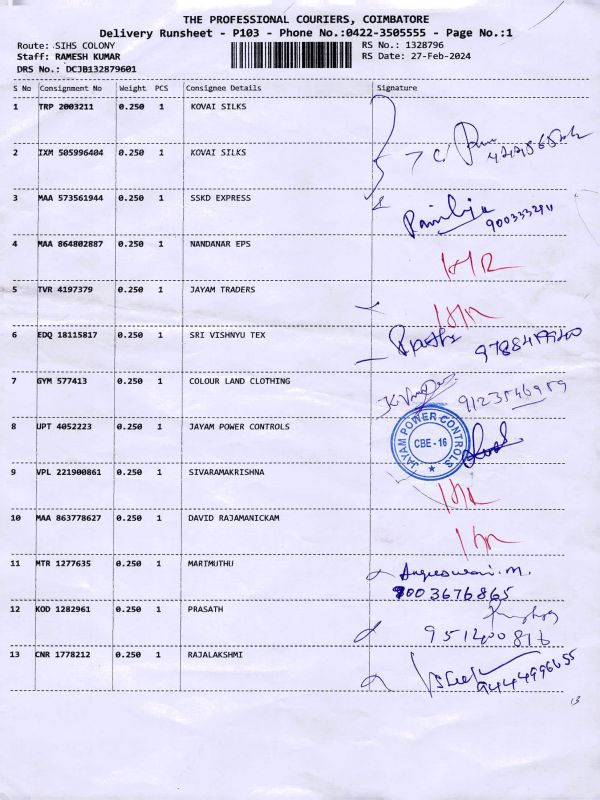 THE PROFESSIONAL COURIERS, COIMBATORE
Delivery Runsheet - P103 - Phone No.:0422-3505555 - Page No.:1
Route: SIHS COLONY RS No.: 1328796
Staff: RAMESH KUMAR RS Date: 27-Feb-2024
DRS No.: DCJB132879601
S No Consignment No Weight PCS Consignee Details Signature
1 TRP 2003211 0.250 1 KOVAI SILKS
2 IXM 505996404 0.250 1 KOVAI SILKS
3 MAA 573561944 0.250 1 SSKD EXPRESS
4 MAA 864802887 0.250 1 NANDANAR EPS
5 TVR 4197379 0.250 1 JAYAM TRADERS
6 EDQ 18115817 0.250 1 SRI VISHNYU TEX
7 GYM 577413 0.250 1 COLOUR LAND CLOTHING
9123546959
8 UPT 4052223 0.250 1 JAYAM POWER CONTROLS
JAYAM POWER CONTROLS
CBE - 16
9 VPL 221900861 0.250 1 SIVARAMAKRISHNA
10 MAA 863778627 0.250 1 DAVID RAJAMANICKAM
11 MTR 1277635 0.250 1 MARIMUTHU
9003676865
12 KOD 1282961 0.250 1 PRASATH
951400816
13 CNR 1778212 0.250 1 RAJALAKSHMI
9444996655
13